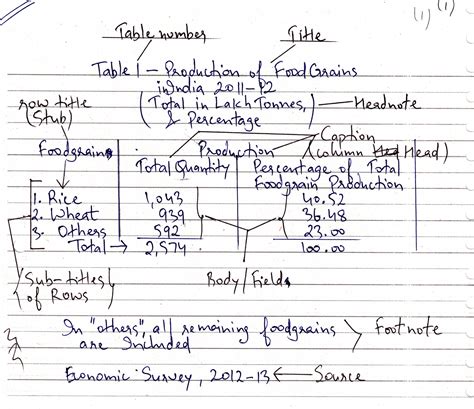 (1) (1)
Table number Title
Table 1 – Production of Food Grains
in India 2011-12
(Total in Lakh Tonnes, Headnote
& Percentage
row title
(Stub)
Caption
(column Head)
Foodgrains Production
Total Quantity Percentage of Total
Foodgrain Production
1. Rice 1,043 40.52
2. Wheat 939 36.48
3. Others 592 23.00
Total → 2,574 100.00
Sub-titles
of Rows
Body/Field
In "others", all remaining foodgrains
are Included
Footnote
Economic Survey, 2012-13 ← Source